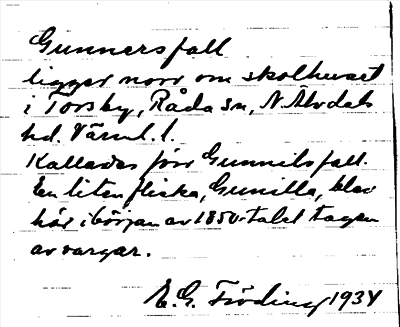 Gunnersfall
ligger norr om skolhuset
i Torsby, Råda sn, N. Älvdals
hd. Värml. l.
Kallades förr Gunnilsfall.
En liten flicka, Gunilla, blev
här i början av 1850-talet tagen
av vargar.
E. G. Fröding 1934